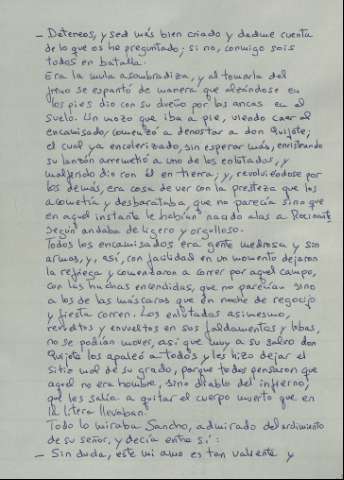 — Deteneos, y sed más bien criado y dadme cuenta
de lo que os he preguntado; si no, conmigo sois
todos en batalla.
Era la mula asombradiza, y al tomarla del
freno se espantó de manera que alzándose en
los pies dio con su dueño por las ancas en el
suelo. Un mozo que iba a pie, viendo caer al
encamisado, comenzó a denostar a don Quijote;
el cual ya encolerizado, sin esperar más, enristrando
su lanzón arremetió a uno de los enlutados, y
malferido dio con él en tierra; y, revolviéndose por
los demás, era cosa de ver con la presteza que los
acometía y desbarataba, que no parecía sino que
en aquel instante le habían nacido alas a Rocinante
según andaba de ligero y orgulloso.
Todos los encamisados era gente medrosa y sin
armas, y, así, con facilidad en un momento dejaron
la refriega y comenzaron a correr por aquel campo,
con las hachas encendidas, que no parecían sino
a los de las máscaras que en noche de regocijo
y fiesta corren. Los enlutados asimesmo,
revueltos y envueltos en sus faldamentos y lobas,
no se podían mover, así que muy a su salvo don
Quijote los apaleó a todos y les hizo dejar el
sitio mal de su grado, porque todos pensaron que
aquel no era hombre, sino diablo del infierno,
que les salía a quitar el cuerpo muerto que en
la litera llevaban.
Todo lo miraba Sancho, admirado del ardimiento
de su señor, y decía entre sí:
— Sin duda, este mi amo es tan valiente y